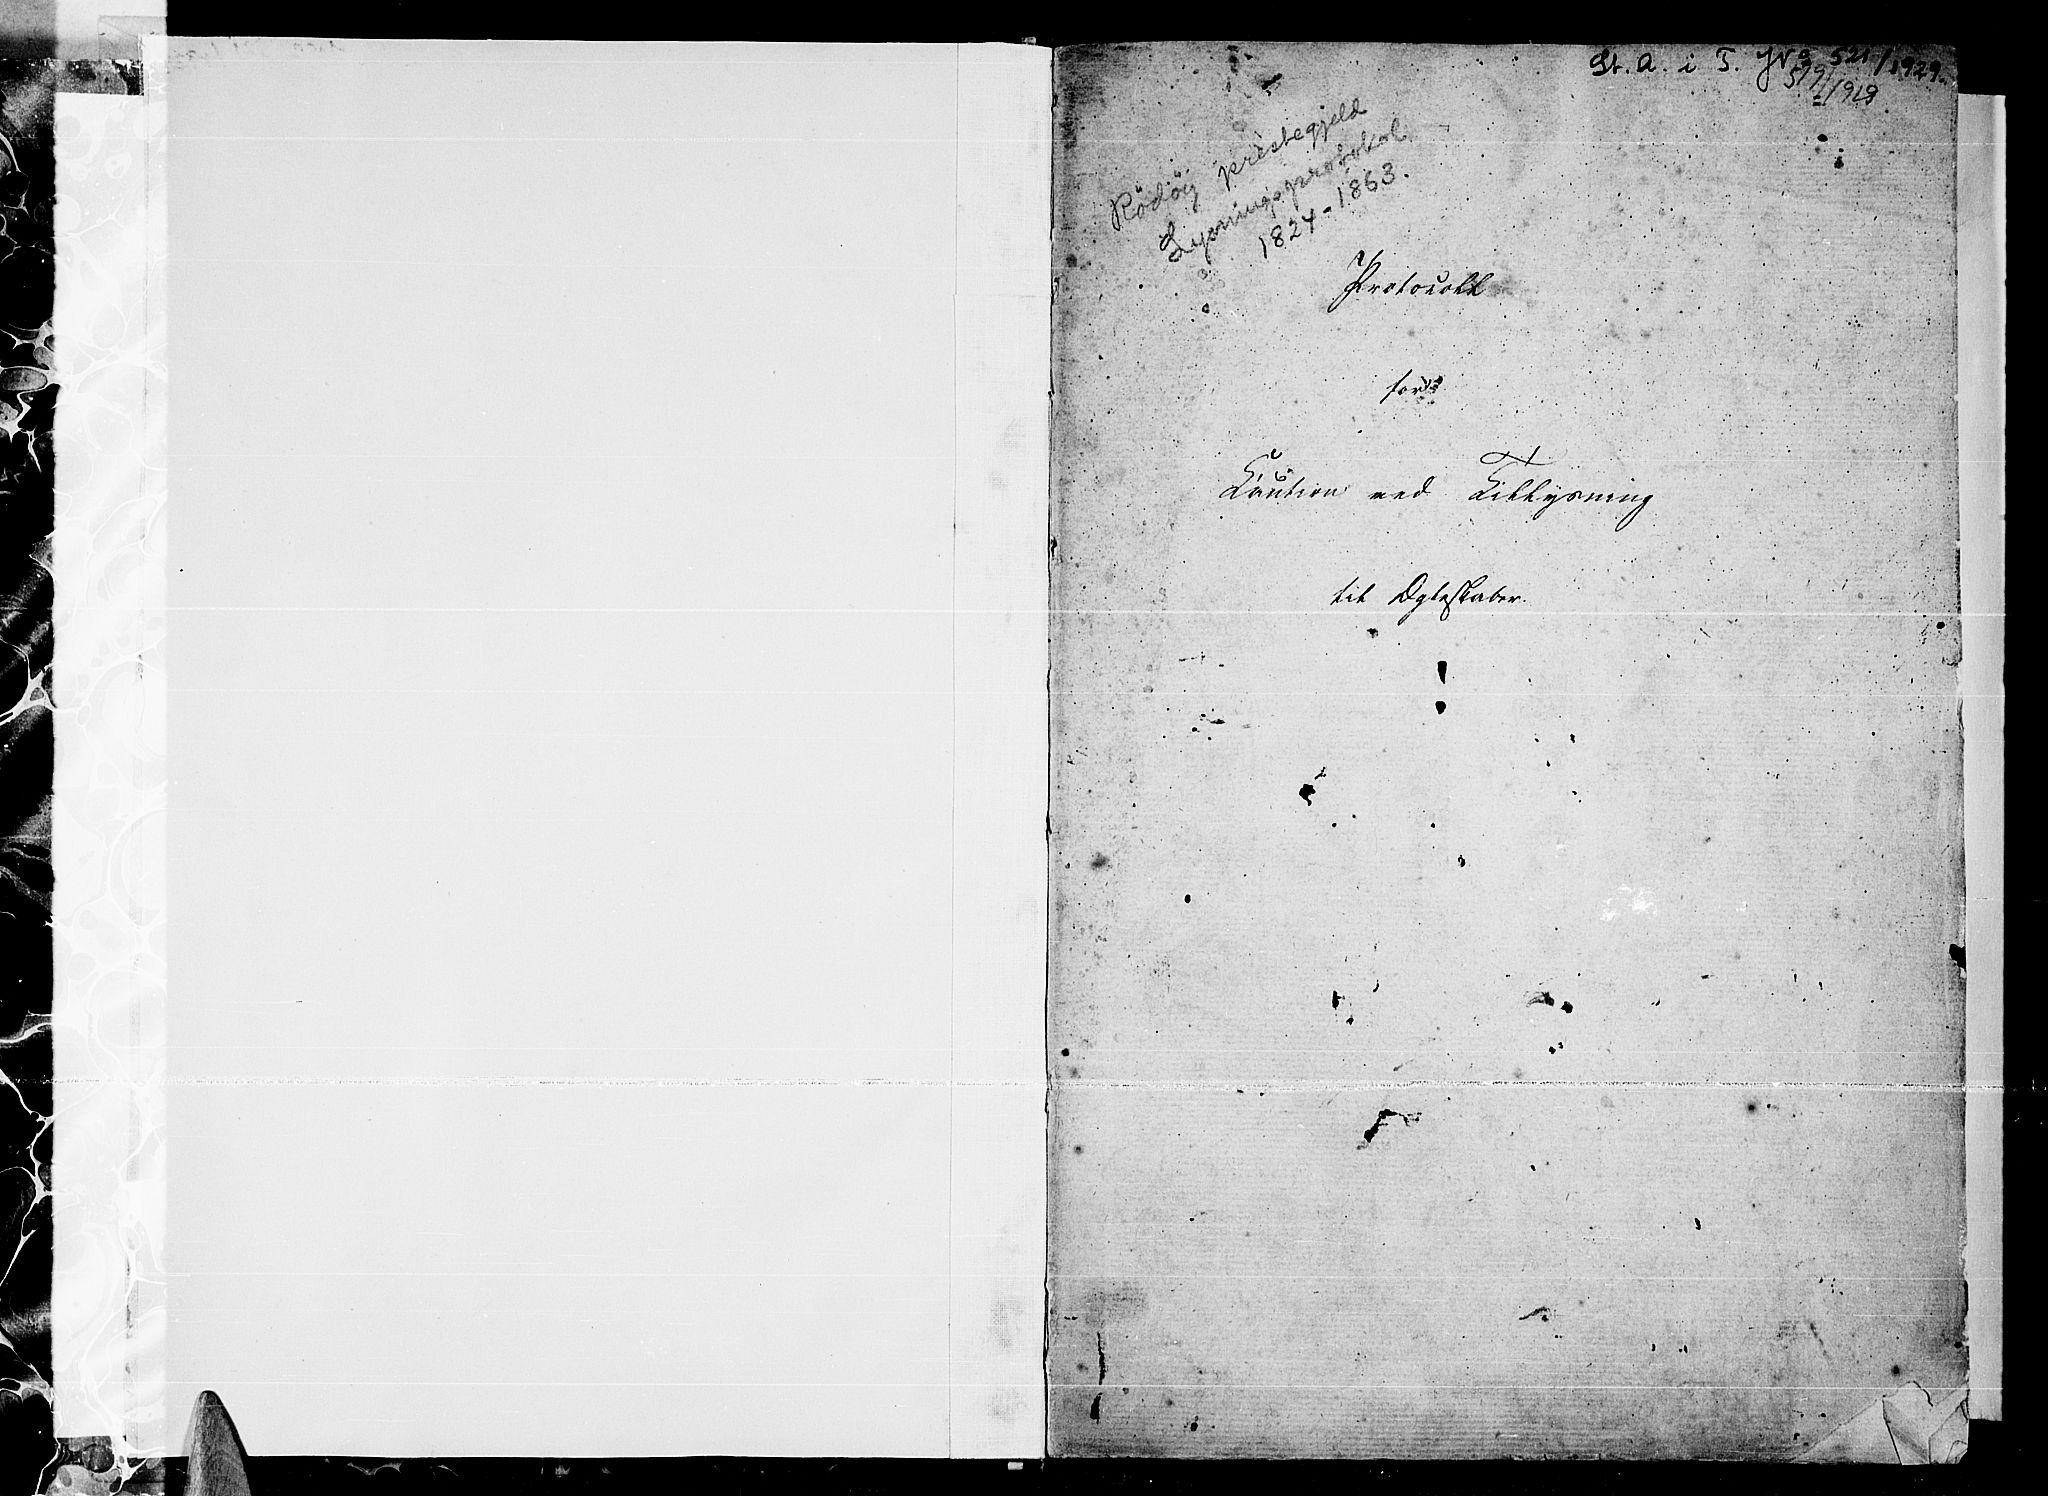 St. A. i T. JN° 521/1929.
519/1918
Rödöy prestegjeld
Lysningsprotokol
1824-1863.
Protocoll
for
Caution ved Tillysning
til Ægteskaber.